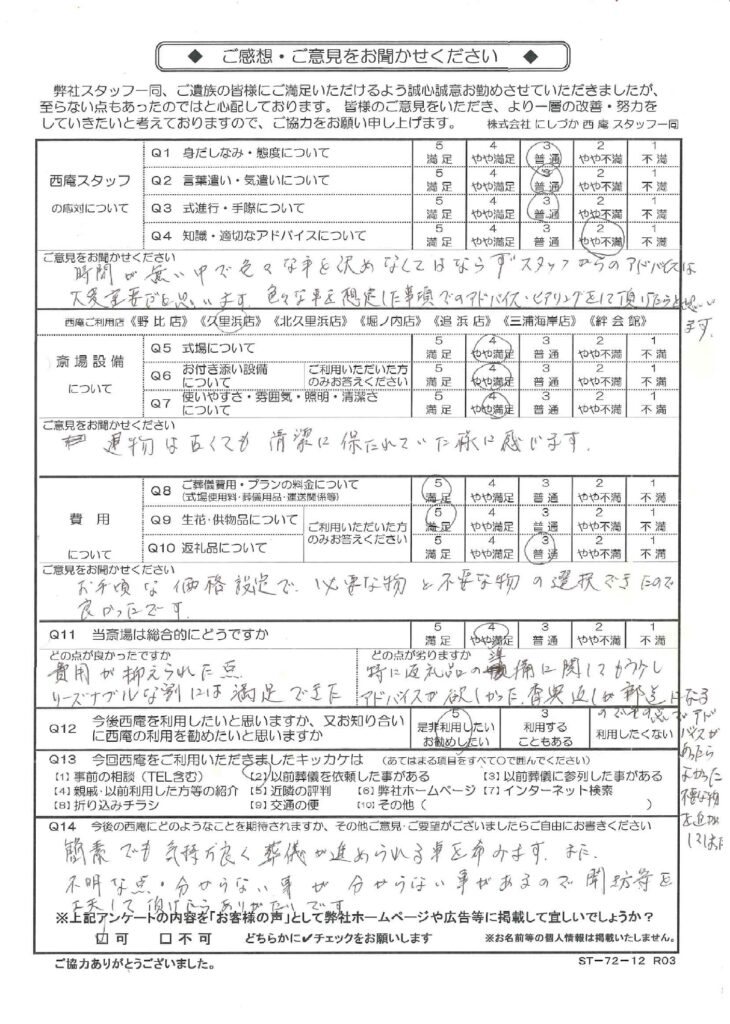 ◆ ご感想・ご意見をお聞かせください ◆
弊社スタッフ一同、ご遺族の皆様にご満足いただけるよう誠心誠意お勤めさせていただきましたが、
至らない点もあったのではと心配しております。皆様のご意見をいただき、より一層の改善・努力を
していきたいと考えておりますので、ご協力をお願い申し上げます。 株式会社 にしづか 西庵 スタッフ一同
西庵スタッフ
の応対について
Q1 身だしなみ・態度について 5 満足 4 やや満足 3 普通 2 やや不満 1 不満
Q2 言葉遣い・気遣いについて 5 満足 4 やや満足 3 普通 2 やや不満 1 不満
Q3 式進行・手際について 5 満足 4 やや満足 3 普通 2 やや不満 1 不満
Q4 知識・適切なアドバイスについて 5 満足 4 やや満足 3 普通 2 やや不満 1 不満
ご意見をお聞かせください
時間が無い中で色々な事を決めなくてはならず スタッフからのアドバイスは
大変重要だと思います。色々な事を想定した事項でのアドバイス・ヒアリングをして頂けたらと思い
ます。
西庵ご利用店《野比店》《久里浜店》《北久里浜店》《堀ノ内店》《追浜店》《三浦海岸店》《絆会館》
斎場設備
について
Q5 式場について 5 満足 4 やや満足 3 普通 2 やや不満 1 不満
Q6 お付き添い設備について ご利用いただいた方のみお答えください 5 満足 4 やや満足 3 普通 2 やや不満 1 不満
Q7 使いやすさ・雰囲気・照明・清潔さについて 5 満足 4 やや満足 3 普通 2 やや不満 1 不満
ご意見をお聞かせください
建物は古くても 清潔に保たれていた様に感じます。
費用
について
Q8 ご葬儀費用・プランの料金について (式場使用料・葬儀用品・運送関係等) 5 満足 4 やや満足 3 普通 2 やや不満 1 不満
Q9 生花・供物品について ご利用いただいた方のみお答えください 5 満足 4 やや満足 3 普通 2 やや不満 1 不満
Q10 返礼品について 5 満足 4 やや満足 3 普通 2 やや不満 1 不満
ご意見をお聞かせください
お手頃な価格設定で、必要な物と不要な物の選択できたので
良かったです。
Q11 当斎場は総合的にどうですか 5 満足 4 やや満足 3 普通 2 やや不満 1 不満
どの点が良かったですか
費用が抑えられた点
リーズナブルな割には満足できた
どの点が劣りますか
特に返礼品の準備に関してもう少し
アドバイスが欲しかった。香典返しが
になる
のでその点でアド
バイスが
あったら
よかった
不要な物
を
Q12 今後西庵を利用したいと思いますか、又お知り合いに西庵の利用を勧めたいと思いますか 5 是非利用したい お勧めしたい 3 利用する こともある 1 利用したくない
Q13 今回西庵をご利用いただきましたキッカケは (あてはまる項目をすべて○で囲んでください)
[1] 事前の相談（TEL含む） [2] 以前葬儀を依頼した事がある [3] 以前葬儀に参列した事がある
[4] 親戚・以前利用した方等の紹介 [5] 近隣の評判 [6] 弊社ホームページ [7] インターネット検索
[8] 折り込みチラシ [9] 交通の便 [10] その他（ ）
Q14 今後の西庵にどのようなことを期待されますか、その他ご意見・ご要望がございましたらご自由にお書きください
簡素でも気持が良く葬儀が進められる事を希みます。また、
不明な点・分からない事が 分からない事があるので
して頂けたらありがたいです
※上記アンケートの内容を「お客様の声」として弊社ホームページや広告等に掲載して宜しいでしょうか？
☑ 可 □ 不可 どちらかに✓チェックをお願いします ※お名前等の個人情報は掲載いたしません。
ご協力ありがとうございました。 ST-72-12 R03